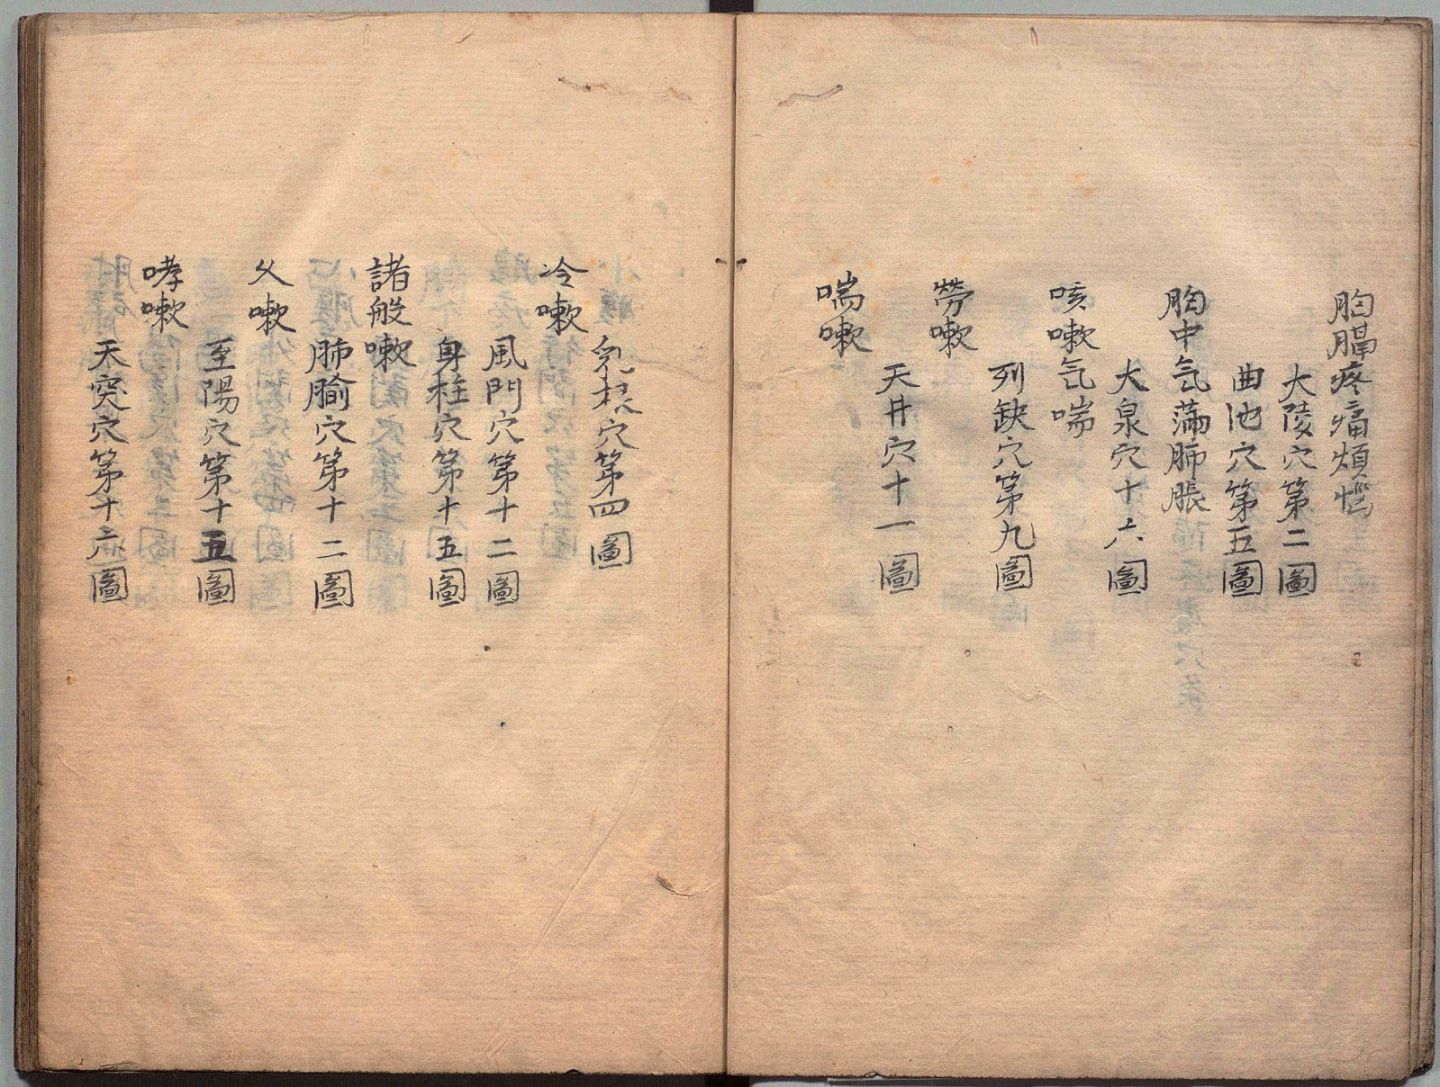 胸膈疼痛煩惱
大陵穴第二圖
曲池穴第五圖
胸中氣滿肺脹
大泉穴十六圖
咳嗽氣喘
列缺穴第九圖
勞嗽
天井穴十一圖
喘嗽
乳根穴第四圖
冷嗽
風門穴第十二圖
身柱穴第十五圖
諸般嗽
肺腧穴第十二圖
久嗽
至陽穴第十五圖
哮嗽
天突穴第十六圖